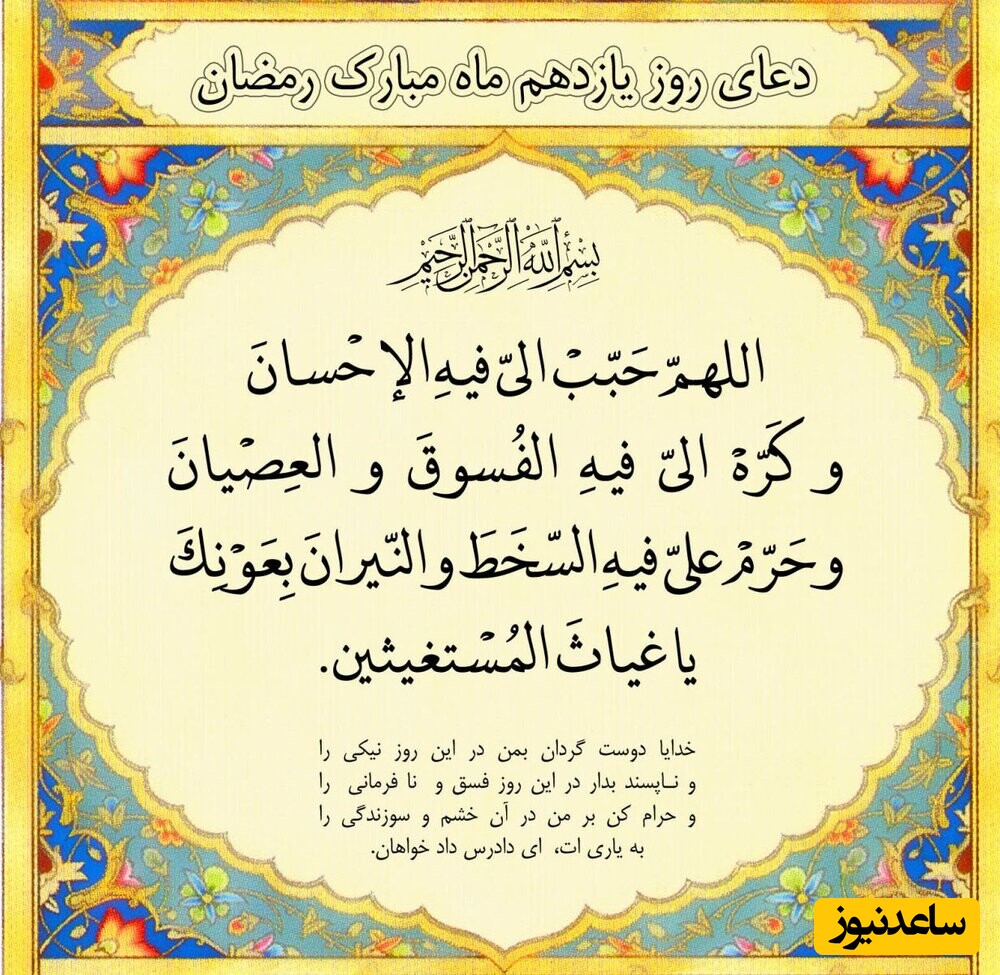 دعای روز یازدهم ماه مبارک رمضان
بِسْمِ اللَّهِ الرَّحْمَنِ الرَّحِيمِ
اللهمّ حَبّبْ الیّ فیهِ الإحْسانَ
و کَرّهْ الیّ فیهِ الفُسوقَ و العِصْیانَ
و حَرّمْ علیّ فیهِ السّخَطَ و النّیرانَ بِعَوْنِكَ
یا غیاثَ المُسْتغیثین.
خدایا دوست گردان بمن در این روز نیکی را
و ناپسند بدار در این روز فسق و نا فرمانی را
و حرام کن بر من در آن خشم و سوزندگی را
به یاری ات، ای دادرس داد خواهان.
ساعدنیوز